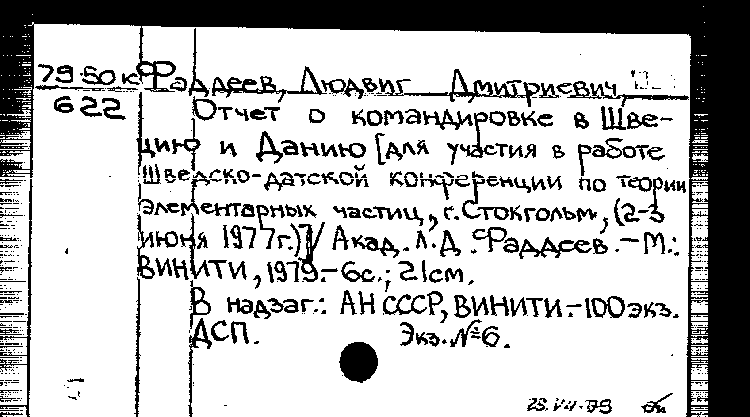 79-50к Фаддеев, Людвиг Дмитриевич,
622 Отчет о командировке в Шве-
цию и Данию [для участия в работе
Шведско-датской конференции по теории
элементарных частиц, г. Стокгольм, (2-3
июня 1977г.)]/ Акад. Л.Д. Фаддеев. - М.:
ВИНИТИ, 1979. - 6с.; 21см.
В надзаг.: АН СССР, ВИНИТИ. - 100 экз.
ДСП. Экз. № 6.
23.VII-79